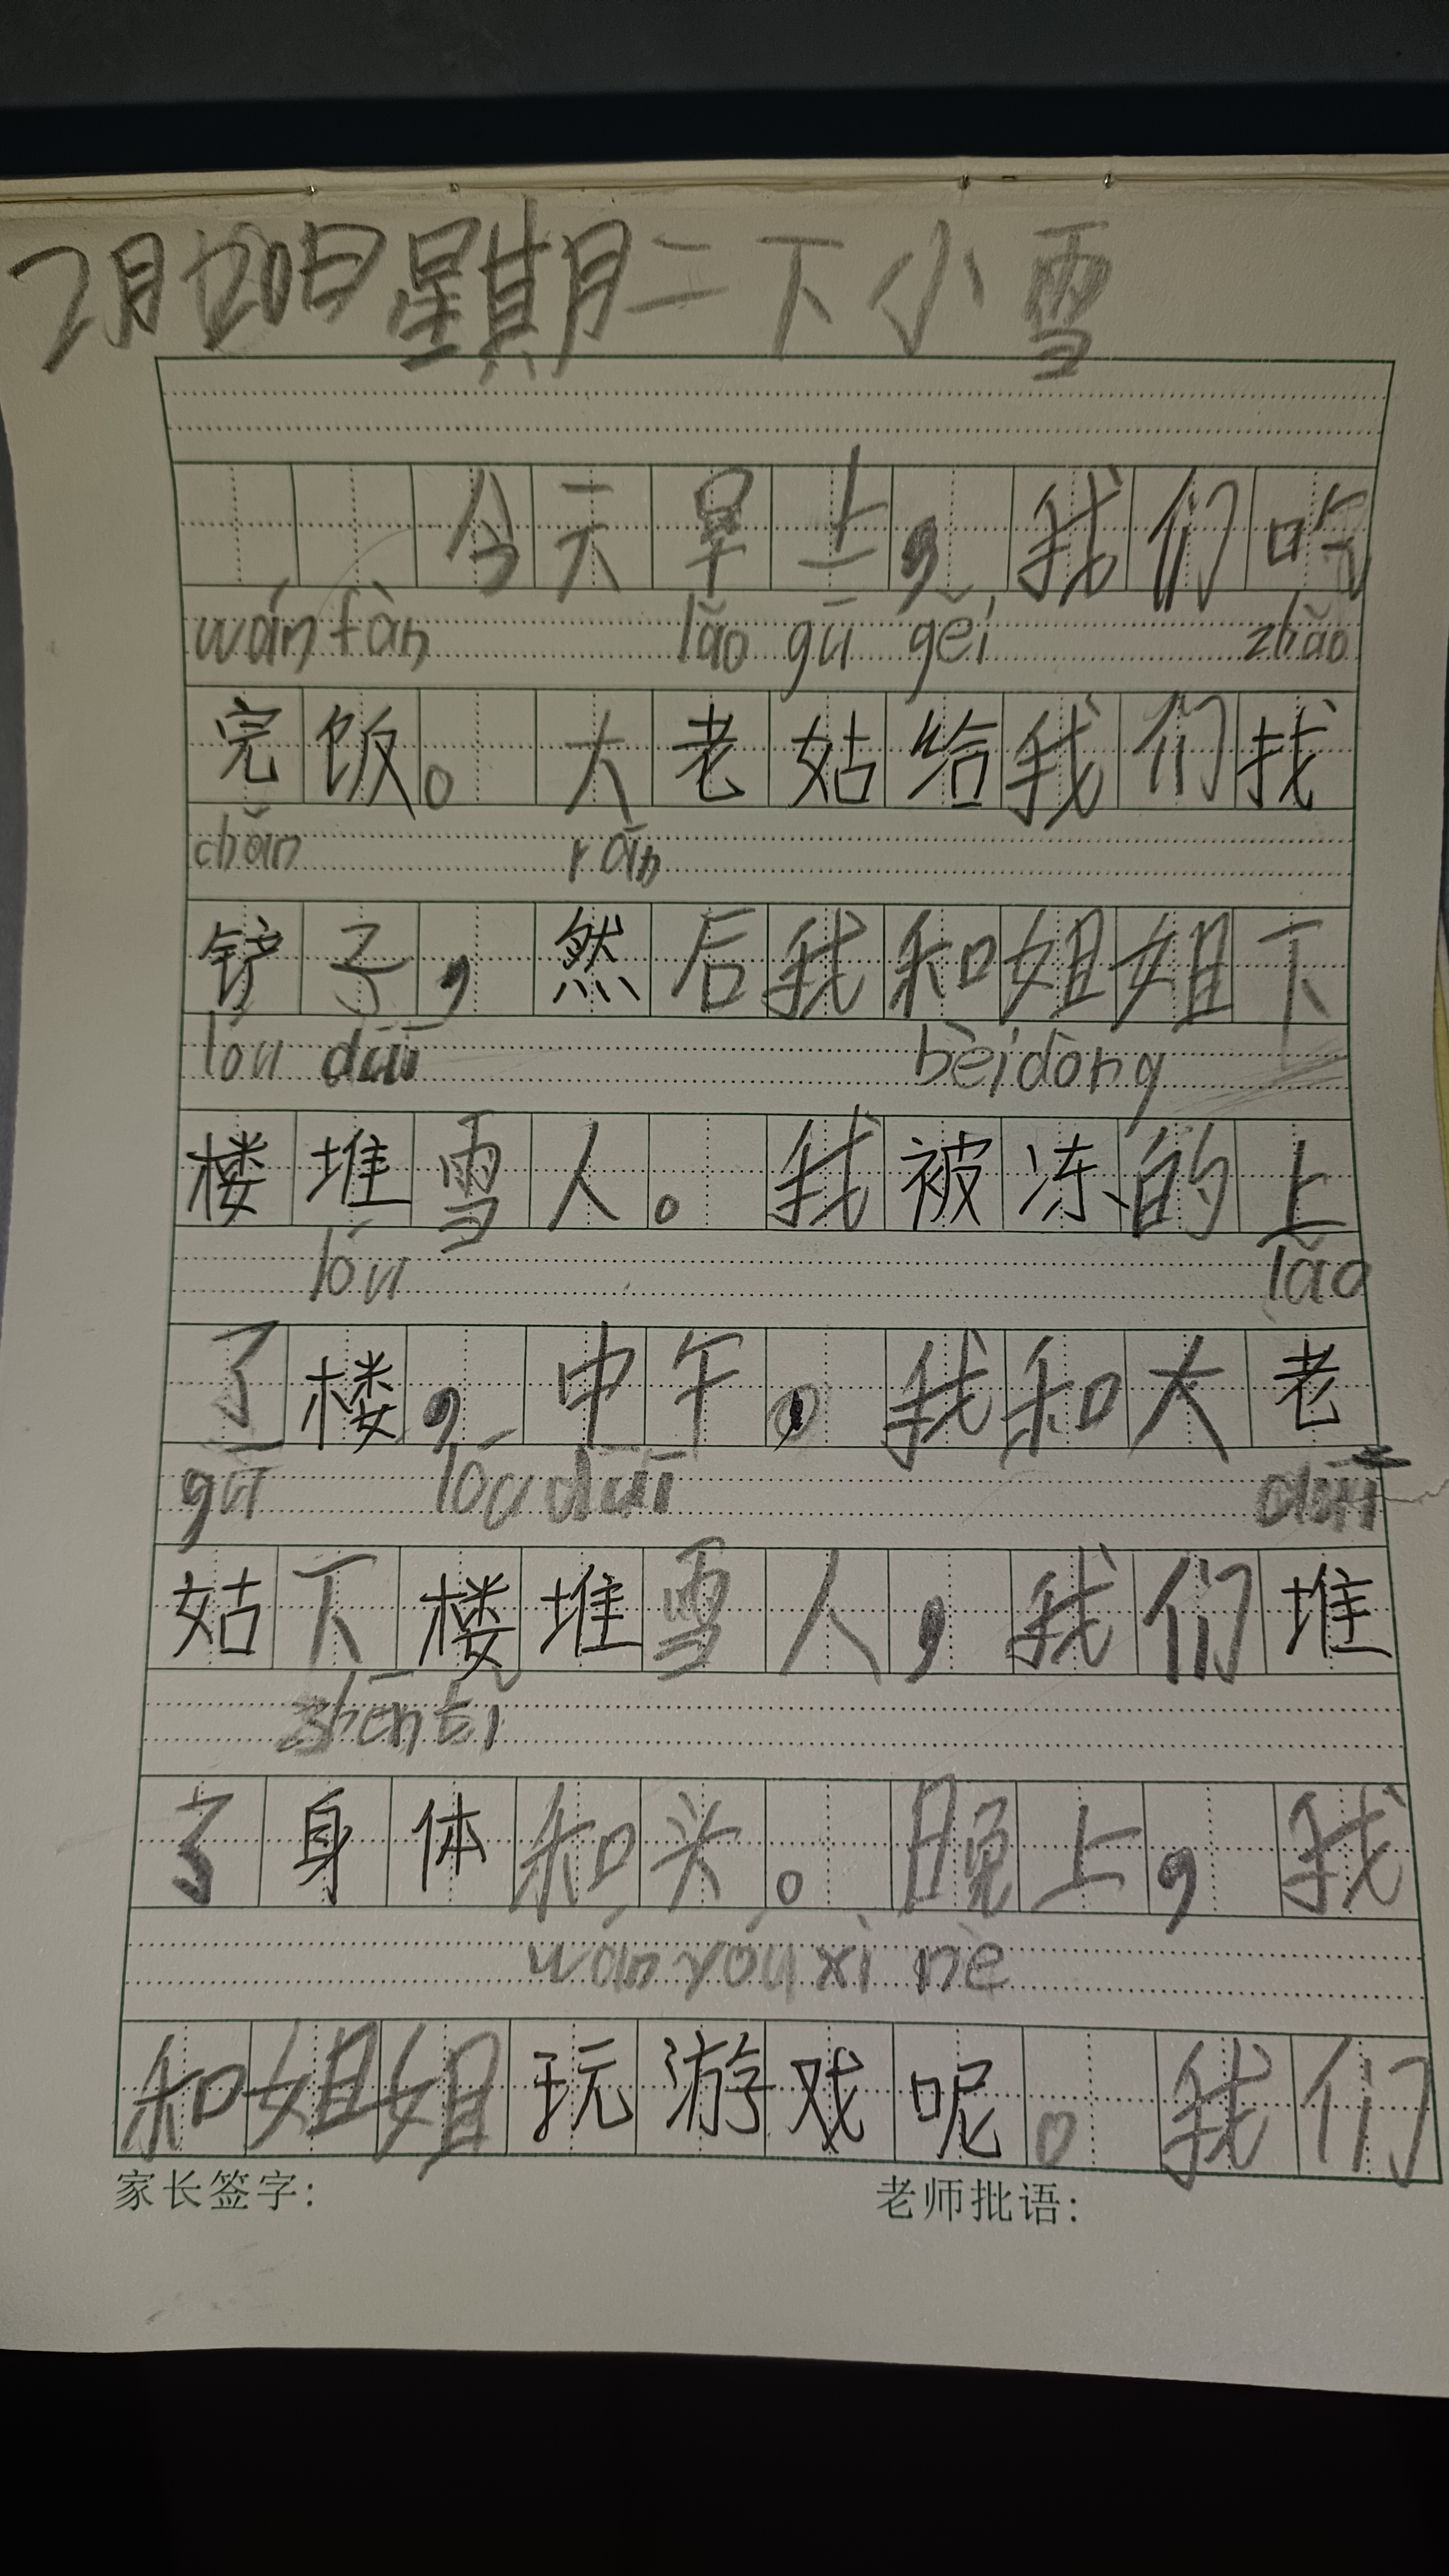 2月20日星期二下小雪
今天早上,我们吃
wán fàn lǎo gū gěi zhǎo
完饭。大老姑给我们找
chǎn rán
铲子,然后我和姐姐下
lóu duī bèi dòng
楼堆雪人。我被冻的上
lóu lǎo
了楼,中午。我和大老
gū lóu duī duī
姑下楼堆雪人,我们堆
shēn tǐ
了身体和头。晚上,我
wán yóu xì nè
和姐姐玩游戏呢。我们
家长签字: 老师批语: